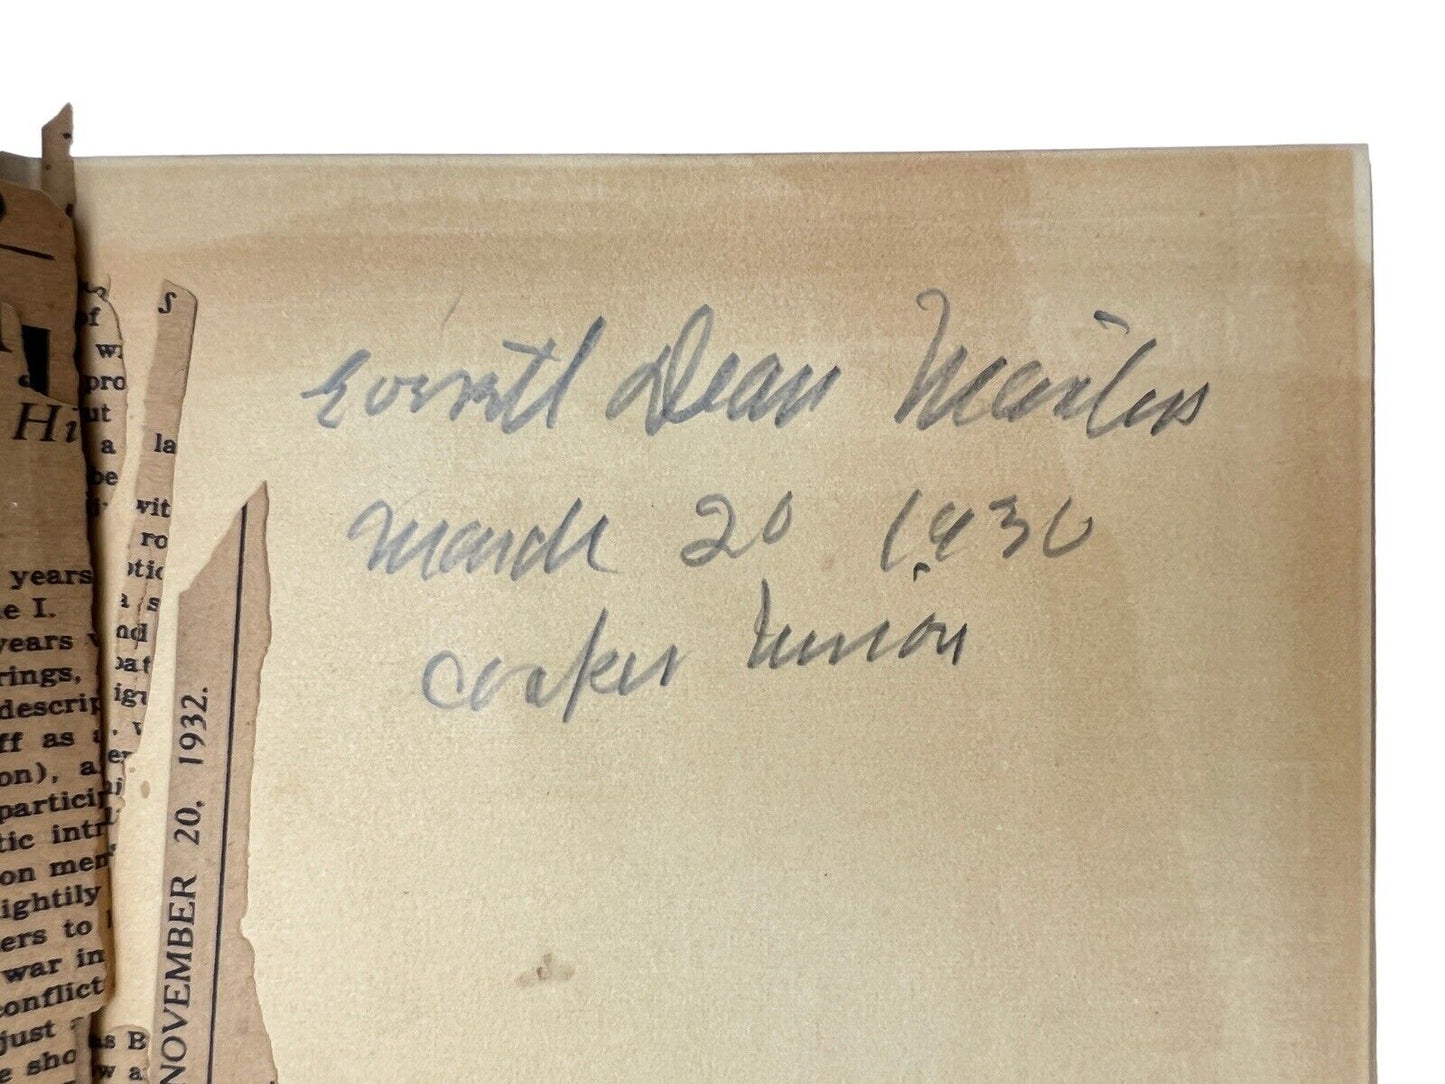 Hi
years
e I.
years
rings,
descrip
ff as a
on), a
particip
tic intr
on mem
ightily
ers to
war in
conflict
just
e sho
S
of
w
pro
ut
a
be
la
wit
ro
otic
a s
nd
pat
ign
as B
w a
NOVEMBER 20, 1932.
Everett Dean Martin
March 20 1930
Cooper Union